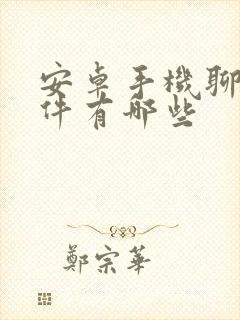 安卓手機聊
件有哪些
鄭宗華